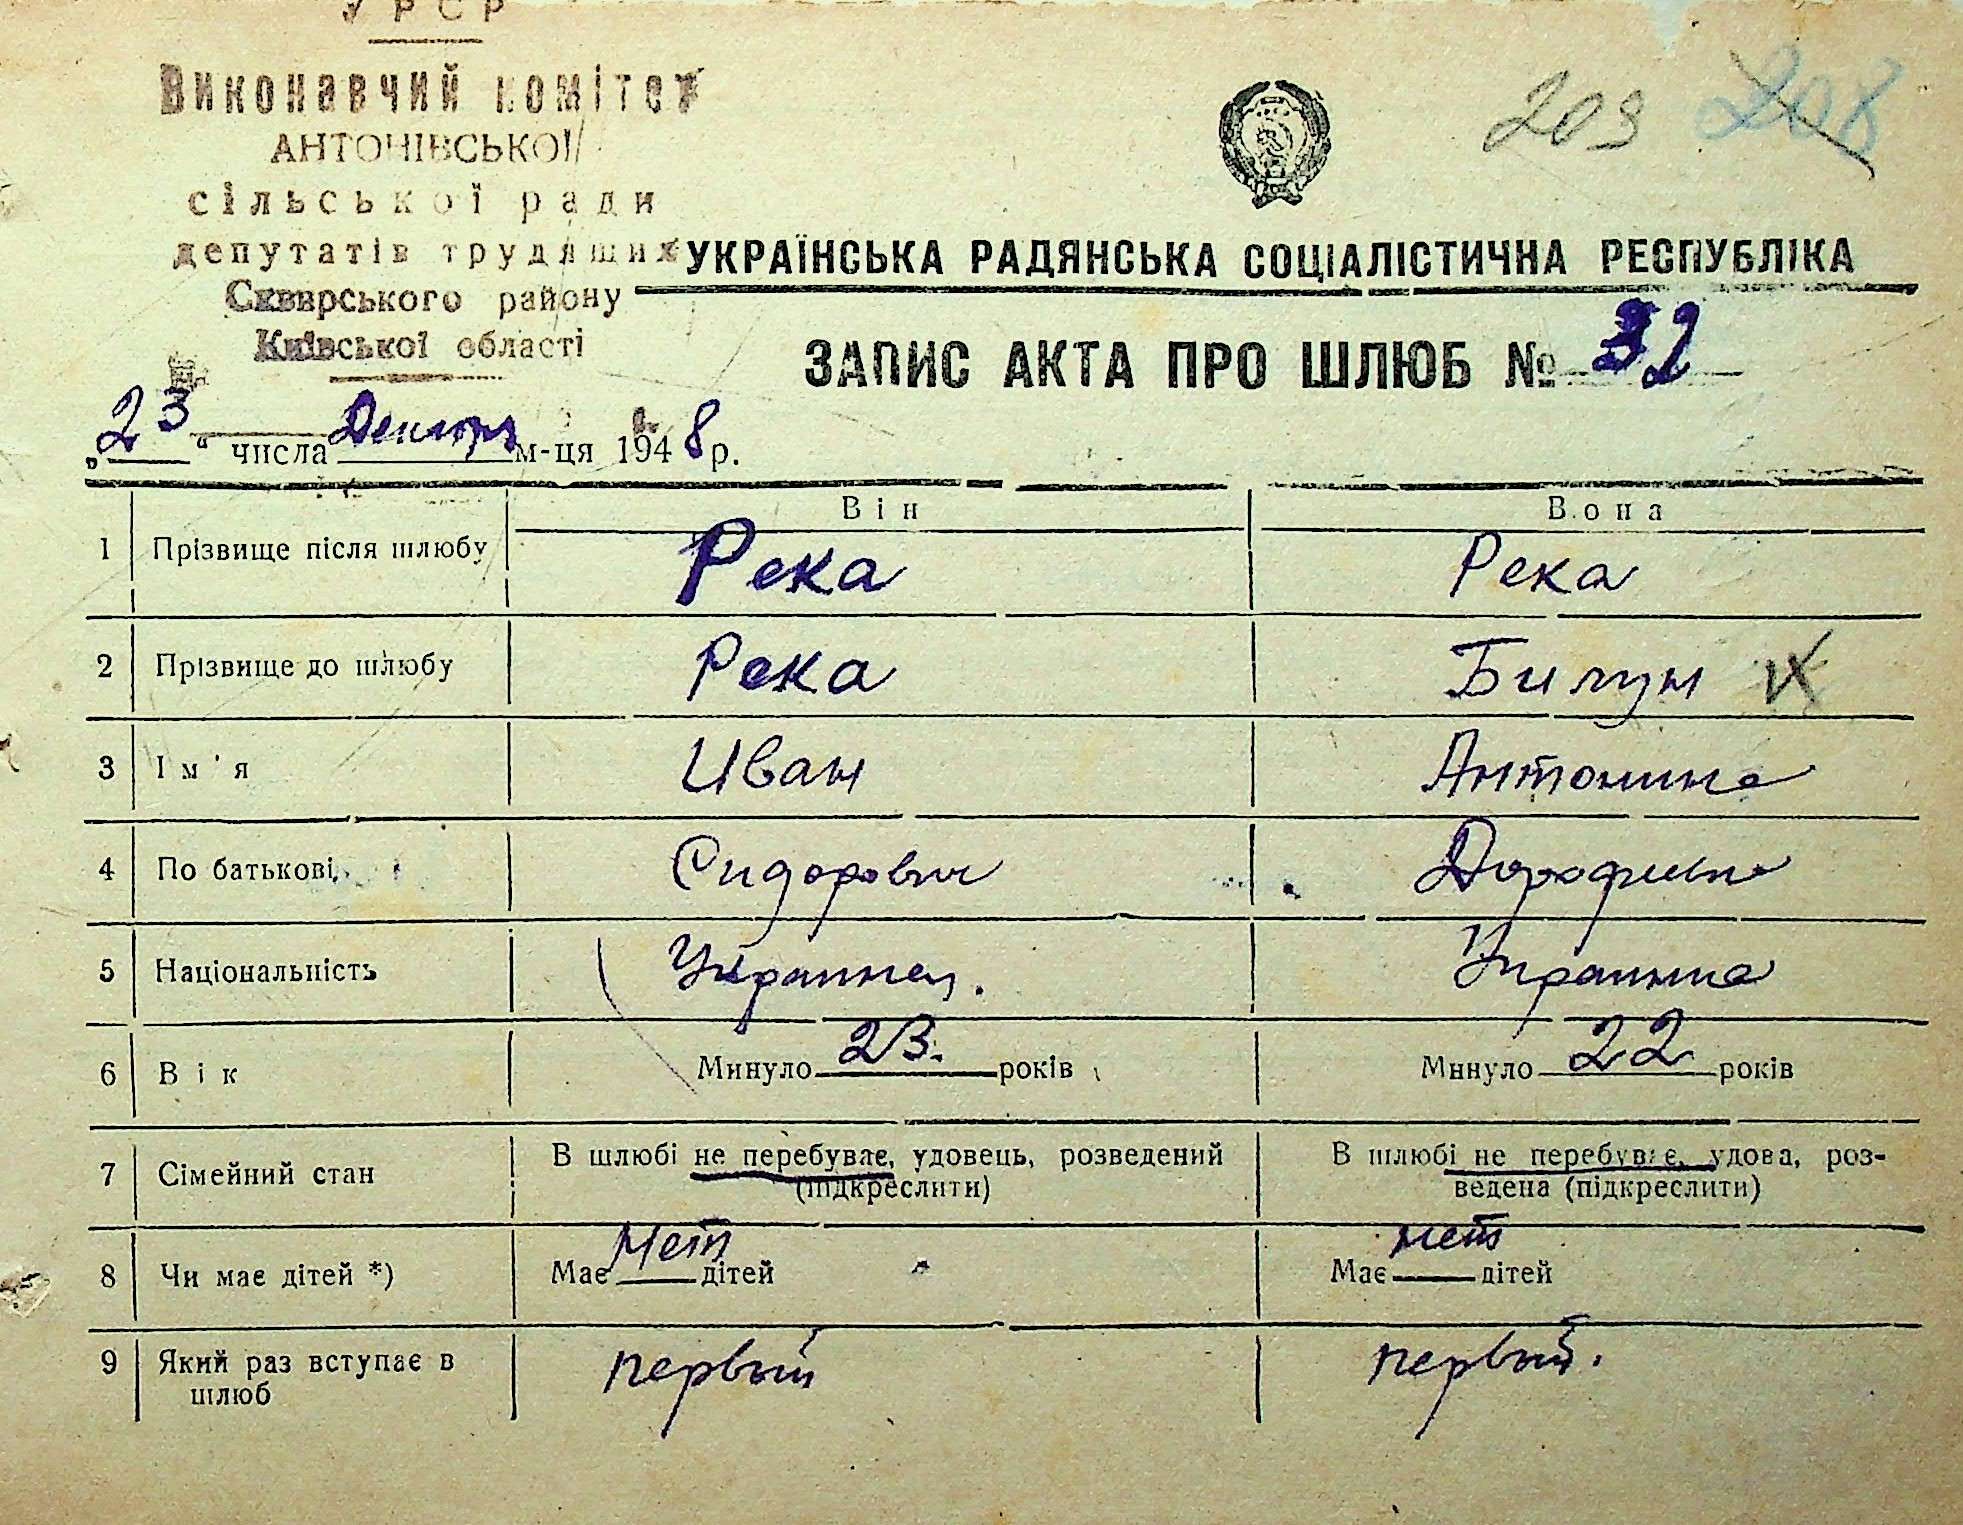 УРСР
Виконавчий комітет
АНТОНІВСЬКОЇ
сільської ради
депутатів трудящих
Сквирського району
Київської області
203 208
УКРАЇНСЬКА РАДЯНСЬКА СОЦІАЛІСТИЧНА РЕСПУБЛІКА
ЗАПИС АКТА ПРО ШЛЮБ № 32
„23“ числа м-ця 1948 р.
Він Вона
1 Прізвище після шлюбу Река Река
2 Прізвище до шлюбу Река Билун
3 Ім'я Иван Антонина
4 По батькові Сидорович
5 Національність Украинец. Украинка
6 Вік Минуло 23. років Минуло 22 років
7 Сімейний стан В шлюбі не перебуває, удовець, розведений В шлюбі не перебуває, удова, роз-
(підкреслити) ведена (підкреслити)
8 Чи має дітей *) Має нет дітей Має нет дітей
9 Який раз вступає в первый первый.
шлюб